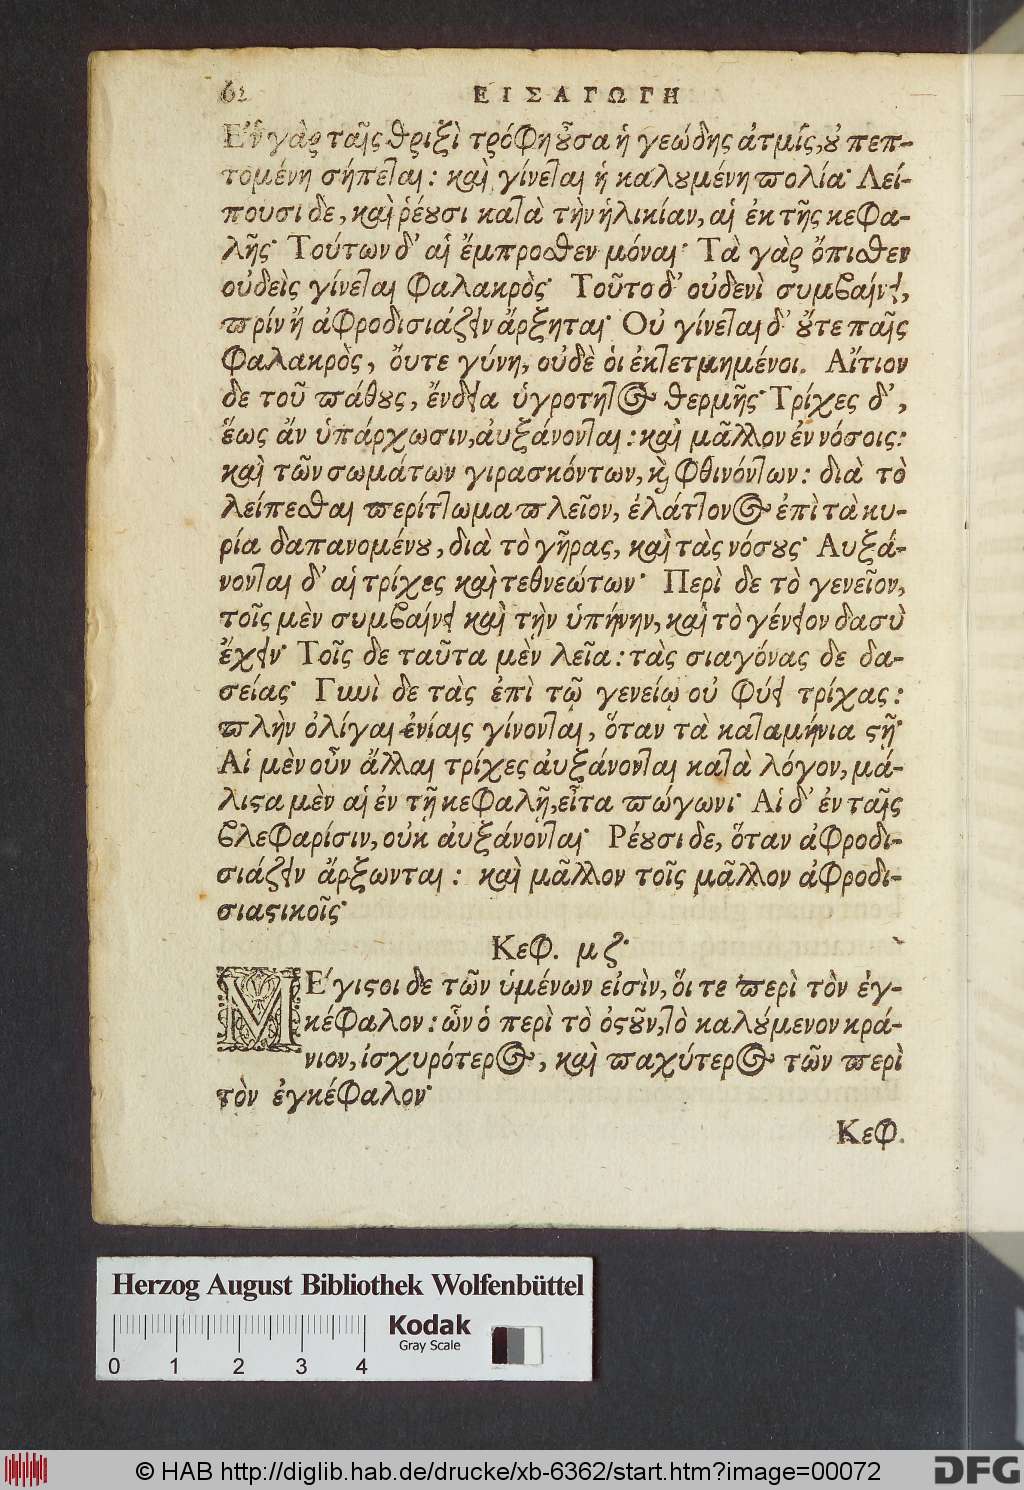 62 ΕΙΣΑΓΩΓΗ
Ἐν γὰρ ταῖς θριξὶ τρόφη οὖσα ἡ γεώδης ἀτμίς, οὐ πεπ-
τομένη σήπεται: καὶ γίνεται ἡ καλουμένη πολία· Λεί-
πουσι δε, καὶ ῥέουσι κατὰ τὴν ἡλικίαν, αἱ ἐκ τῆς κεφα-
λῆς· Τούτων δ' αἱ ἔμπροσθεν μόναι· Τὰ γὰρ ὄπισθεν
οὐδεὶς γίνεται φαλακρὸς· Τοῦτο δ' οὐδενὶ συμβαίνει,
πρίν ἤ ἀφροδισιάζειν ἄρξηται· Οὐ γίνεται δ' οὔτε παῖς
φαλακρὸς, ὄυτε γύνη, οὐδὲ ὁι ἐκτετμημένοι. Αἴτιον
δε τοῦ πάθους, ἔνδεια ὑγροτητος θερμῆς· Τρίχες δ',
ἕως ἄν ὑπάρχωσιν, ἀυξάνονται: καὶ μᾶλλον ἐν νόσοις:
καὶ τῶν σωμάτων γιρασκόντων, καὶ φθινόντων: διὰ τὸ
λείπεσθαι περίττωμα πλεῖον, ἐλάττονος ἐπὶ τὰ κυ-
ρία δαπανομένου, διὰ τὸ γῆρας, καὶ τὰς νόσους· Αυξά-
νονται δ' αἱ τρίχες καὶ τεθνεώτων· Περὶ δε τὸ γενεῖον,
τοῖς μὲν συμβαίνει καὶ τὴν ὑπήνην, καὶ τὸ γένειον δασὺ
ἔχειν· Τοῖς δε ταῦτα μὲν λεῖα: τὰς σιαγόνας δε δα-
σείας· Γυνὶ δε τὰς ἐπὶ τῷ γενείῳ οὐ φύει τρίχας:
πλὴν ὀλίγαι ἐνίαις γίνονται, ὅταν τὰ καταμήνια στῇ·
Αἱ μὲν οὖν ἄλλαι τρίχες ἀυξάνονται κατὰ λόγον, μά-
λιστα μὲν αἱ ἐν τῇ κεφαλῇ, εἶτα πώγωνι· Αἱ δ' ἐν ταῖς
βλεφαρίσιν, οὐκ ἀυξάνονται· Ρέουσι δε, ὅταν ἀφροδι-
σιάζειν ἄρξωνται: καὶ μᾶλλον τοῖς μᾶλλον ἀφροδι-
σιαστικοῖς·
Κεφ. μζ·
ΜΕγιστοι δε τῶν ὑμένων εἰσὶν, ὅι τε περὶ τὸν ἐγ-
κέφαλον: ὧν ὁ περὶ τὸ ὀστοῦν, τὸ καλούμενον κρά-
νιον, ἰσχυρότερος, καὶ παχύτερος τῶν περὶ
τὸν ἐγκέφαλον·
Κεφ.
Herzog August Bibliothek Wolfenbüttel
Kodak
Gray Scale
0 1 2 3 4
© HAB http://diglib.hab.de/drucke/xb-6362/start.htm?image=00072
DFG